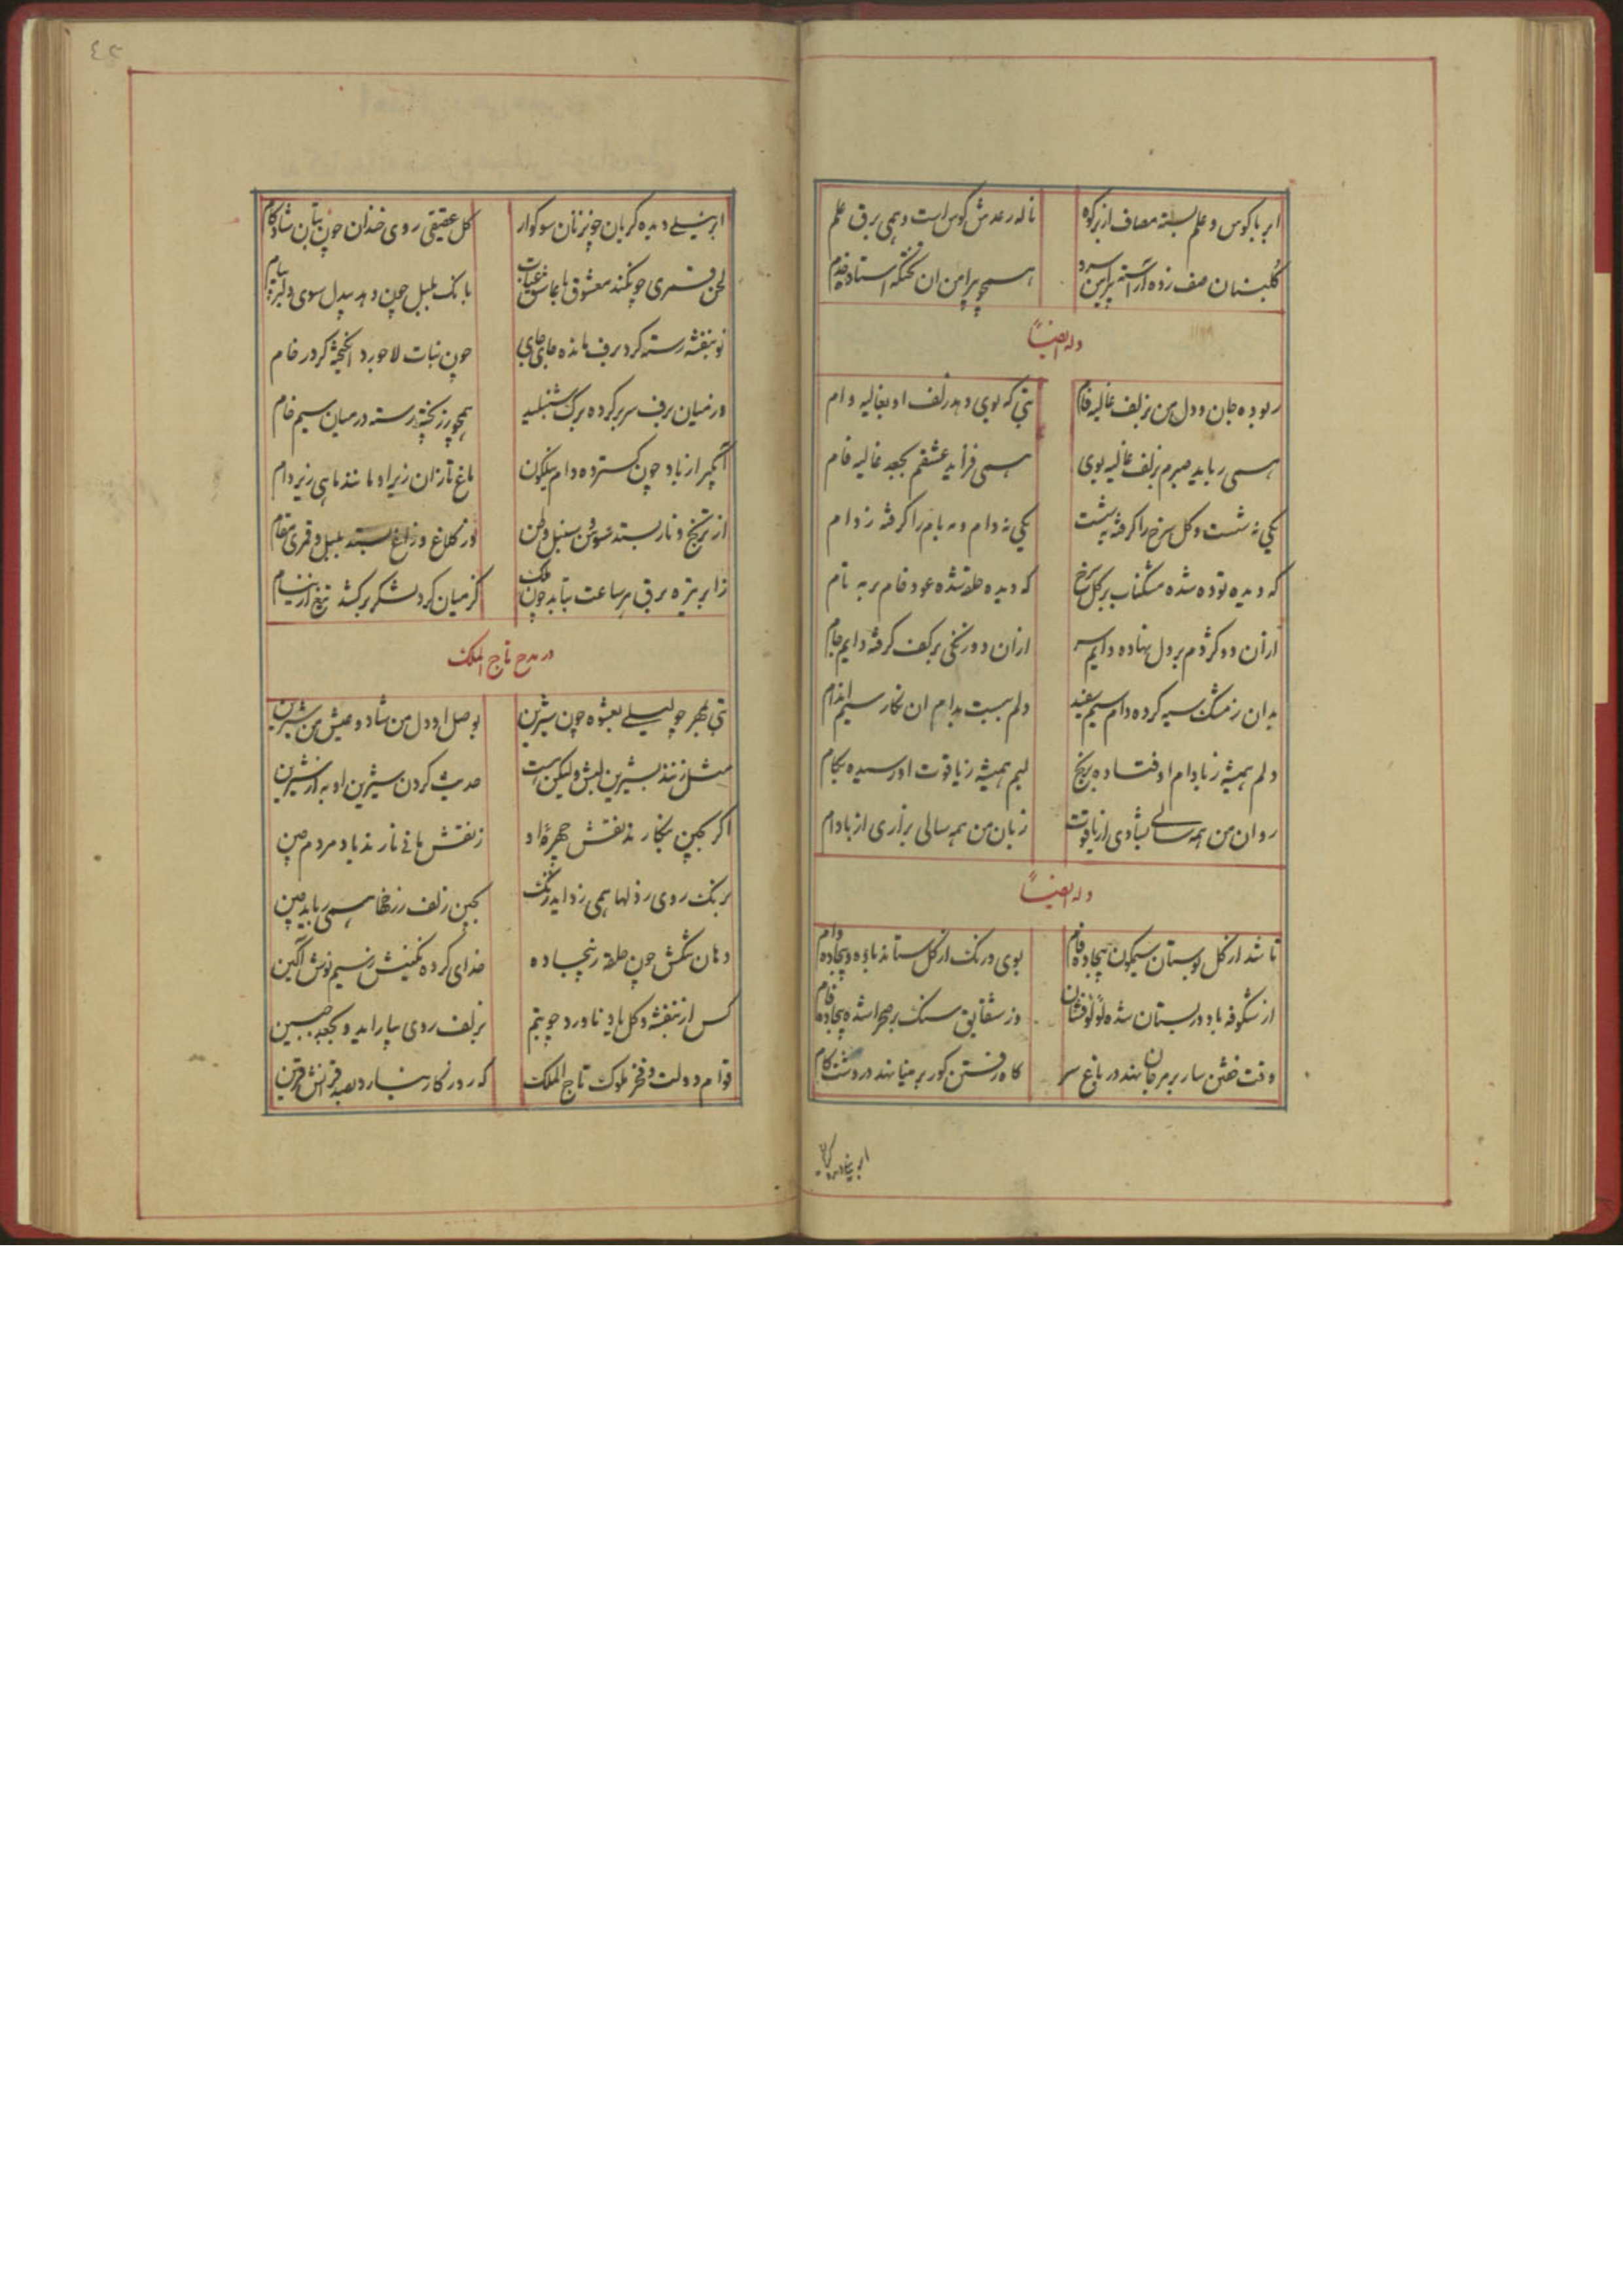 ابر با کوس و علم بسته مصاف از بر کوه ناله رعدش کوس است و همی برق علم
گلبنان صف زده آراسته پیرامن سرو همچو پیرامن ان تختگه استاده خدم
وله ایضاً
ربوده جان و دل من بزلف غالیه فام بتی که بوی دهد زلف او بغالیه وام
همی رباید صبرم بزلف غالیه بوی همی فزاید عشقم بجعد غالیه فام
یکی نه شست و گل سرخ را گرفته بشست یکی نه دام و مه بام را گرفته ز دام
که دیده توده شده مشکناب بر گل سرخ که دیده حلقه شده عود خام بر مه تام
ازان دو گژدم بر دل نهاده دایم سر ازان دو زنگی بر کف گرفته دایم جام
بدان ز مشک سیه کرده دام سیم سفید دلم ببست بدام ان نگار سیم اندام
دلم همیشه ز بادام او فتاده برنج لبم همیشه ز یاقوت او رسیده بکام
روان من همه سالی بشادی از یاقوت زبان من همه سالی بزاری از بادام
وله ایضاً
تا شد از گل بوستان سیمگون بیجاده فام بوی و رنگ از گل ستاند باده و بیجاده وام
از شگوفه باد در بستان شده لؤلؤ فشان وز شقایق سنگ بر صحرا شده بیجاده فام
وقت خفتن سار بر مرجان نهد در باغ سر گاه رفتن گور بر مینا نهد در دشت گام
ابر نیلی دیده گریان چون زنان سوکوار گل عقیقی روی خندان چون بتان شادکام
لحن قمری چو نکند معشوق با عاشق عتاب بانگ بلبل چون دهد بیدل سوی دلبر پیام
نو بنفشه رسته گرد برف مانده جای جای چون نبات لاجورد انگیخته گرد رخام
در میان برف سر بر کرده برگ شنبلید همچو زر پخته رسته در میان سیم خام
آبگیر از باد چون گسترده دام نیلگون ماغ تازان زیر او مانند ماهی زیر دام
از ترنج و نار بسته سوسن و سنبل وطن وز کلاغ و زاغ بستد بلبل و قمری مقام
ز ابر تیره برق هر ساعت بتابد چون ملک کز میان گرد لشکر برکشد تیغ از نیام
در مدح تاج الملک
بتی بمهر چو لیلی بعشوه چون شیرین بوصل او دل من شاد و عیش من شیرین
مثل زنند بشیرین لبش ولیکن هست حدیث کردن شیرین او به از شیرین
اگر بچین بنگارند نقش چهره او ز نقش مانی نارند یاد مردم چین
برنگ روی ز دلها همی زداید زنگ بچین زلف ز رخها همی رباید چین
دهان تنگش چون حلقه ز بیجاده خدای کرده نگینش ز سیم نوش آگین
کس از بنفشه و گل یاد ناورد چو بتم بزلف روی بیاراید و بجعد جبین
قوام دولت و فخر ملوک تاج الملک که روزگار نیارد بصد قرانش قرین
ابر نیلی دیده گریان
٤٥